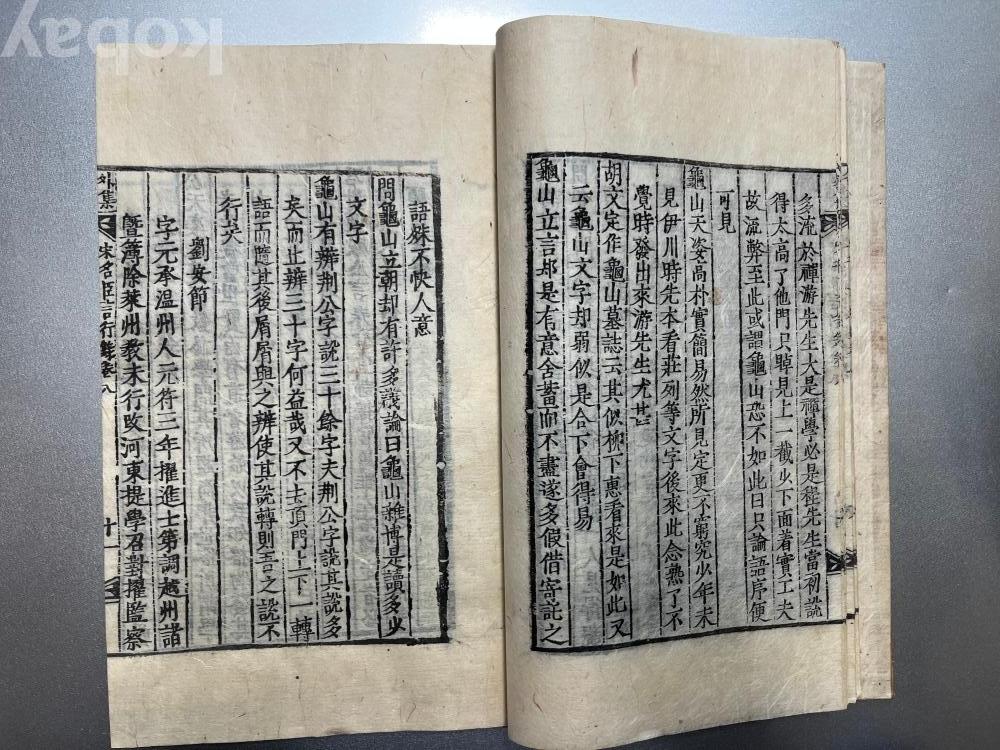 多流於禪游先生大是禪學必是程先生當初說
得太高了他門只晫見上一截少下面着實工夫
故流弊至此或謂龜山恐不如此曰只論語序便
可見
龜山天姿高朴實簡易然所見定更不窮究少年未
見伊川時先本看莊列等文字後來此念熟了不
覺時發出來游先生尤甚
胡文定作龜山墓誌云其似柳下惠看來是如此又
云龜山文字却弱似是合下會得易
龜山立言却是有意舍蓄而不盡遂多假借寄託之
語殊不快人意
問龜山立朝却有許多議論曰龜山雜博是讀多少
文字
龜山有辨荆公字說三十餘字夫荆公字說其說多
矣而止辨三十字何益哉又不去頂門上下一轉
語而隨其後屑屑與之辨使其說轉則吾之說不
行矣
劉安節
字元承温州人元符三年擢進士第調越州諸
曁簿除萊州教未行改河東提學召對擢監察
外集
宋名臣言行錄卷八
十一
kobay